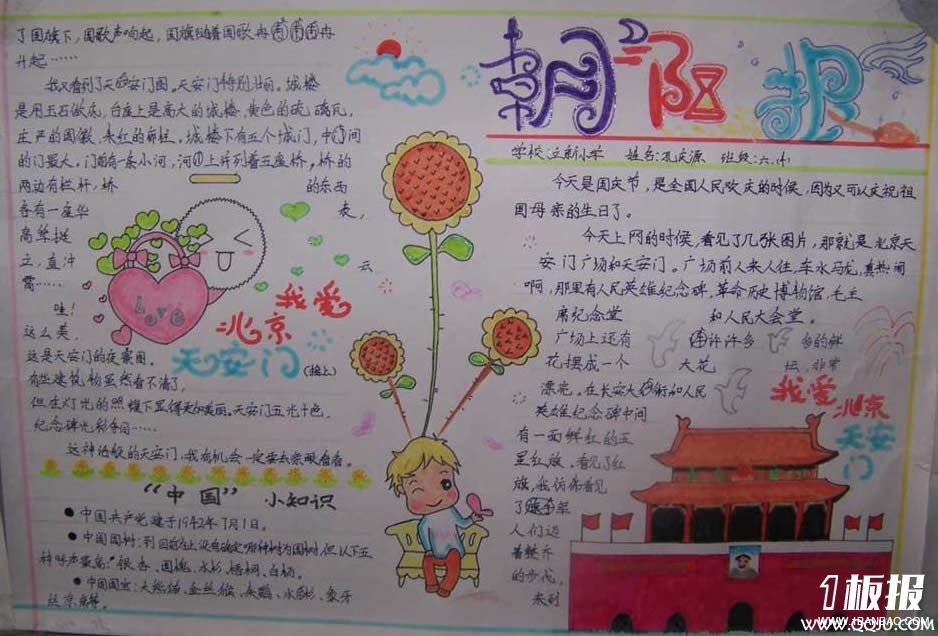 朝阳报
学校:立新小学 姓名:孔庆源 班级:六.(4)
今天是国庆节，是全国人民欢庆的时候，因为又可以庆祝祖
国母亲的生日了。
今天上网的时候，看见了几张图片，那就是北京天
安门广场和天安门。广场前人来人往，车水马龙，真热闹
啊，那里有人民英雄纪念碑，革命历史博物馆，毛主
席纪念堂 和人民大会堂。
广场上还有 许许多多的鲜
花摆成一个 大花 坛，非常
漂亮。在长安大街和人民
英雄纪念碑中间
有一面鲜红的五
星红旗。看见了红
旗，我仿佛看见
了 军
人们迈
着整齐
的步伐，
来到
我爱
北京
天安
门
了国旗下，国歌声响起，国旗随着国歌冉冉
升起……
我又看到了天安门图。天安门特别壮丽。城楼
是用玉石做底，台座上是高大的城楼，黄色的琉璃瓦，
庄严的国徽，朱红的廊柱。城楼下有五个城门，中间
的门最大。门前有一条小河，河上并列着五座桥，桥的
两边有栏杆，桥 的东西
各有一座华 表，
高耸挺
立，直冲 云
霄……
哇！
这么美，
这是天安门的夜景图。
有些建筑物虽然看不清了，
但在灯光的照耀下显得更加美丽。天安门五光十色，
纪念碑光彩夺目……
这神话般的天安门，我有机会一定要去亲眼看看。
Love
我爱
北京
天安门
(接上)
“中国”小知识
●中国共产党建于1942年7月1日。
●中国国树:到目前为止没有确定哪种树为国树，但以下五
种呼声最高:银杏、国槐、水杉、梧桐、白杨。
●中国国宝:大熊猫、金丝猴、朱鹮、水杉、象牙
1板报
WWW.1BANBAO.COM
WWW.QQJU.COM